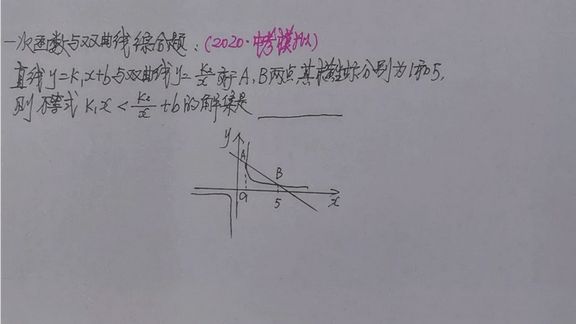 一次函数与双曲线综合题:(2020·中考模拟)
直线y=K₁x+b与双曲线y=K₂/x交于A、B两点,其横坐标分别为1和5,
则不等式K₁x<K₂/x+b的解集是
y
A
B
5
x